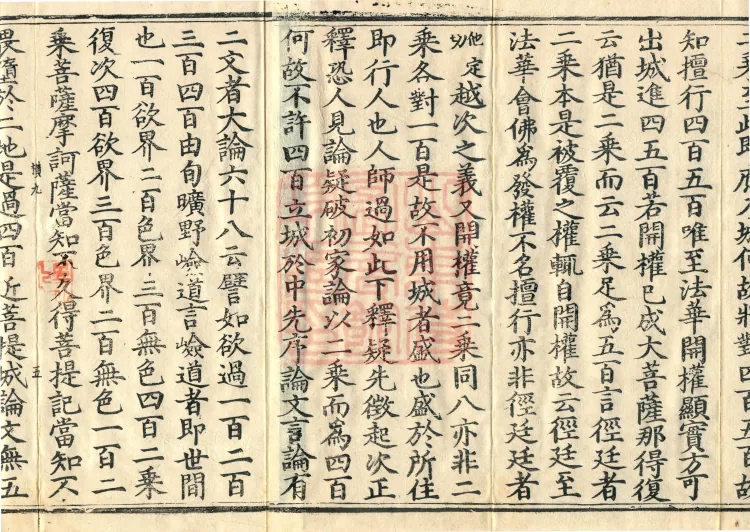 此即人城何故將對四百五百故
知擅行四百五百唯至法華開權顯實方可
出城進四五百若開權已成大菩薩那得復
云猶是二乘而云二乘足爲五百言徑廷者
二乘本是被覆之權輒自開權故云徑廷至
法華會佛爲發權不名擅行亦非徑廷廷者
他定切越次之義又開權竟二乘同八亦非二
乘各對一百是故不用城者盛也盛於所住
即行人也人師過如此下釋疑先徵起次正
釋恐人見論疑破初家論以二乘而爲四百
何故不許四百立城於中先序論文言論有
二文者大論六十八云譬如欲過一百二百
三百四百由旬曠野嶮道言嶮道者即世間
也一百欲界二百色界三百無色四百二乘
復次四百欲界三百色界二百無色一百二
乘菩薩摩訶薩當知不久得菩提記當知不
九 五
畏墮於二地是過四百近菩提城論文無五